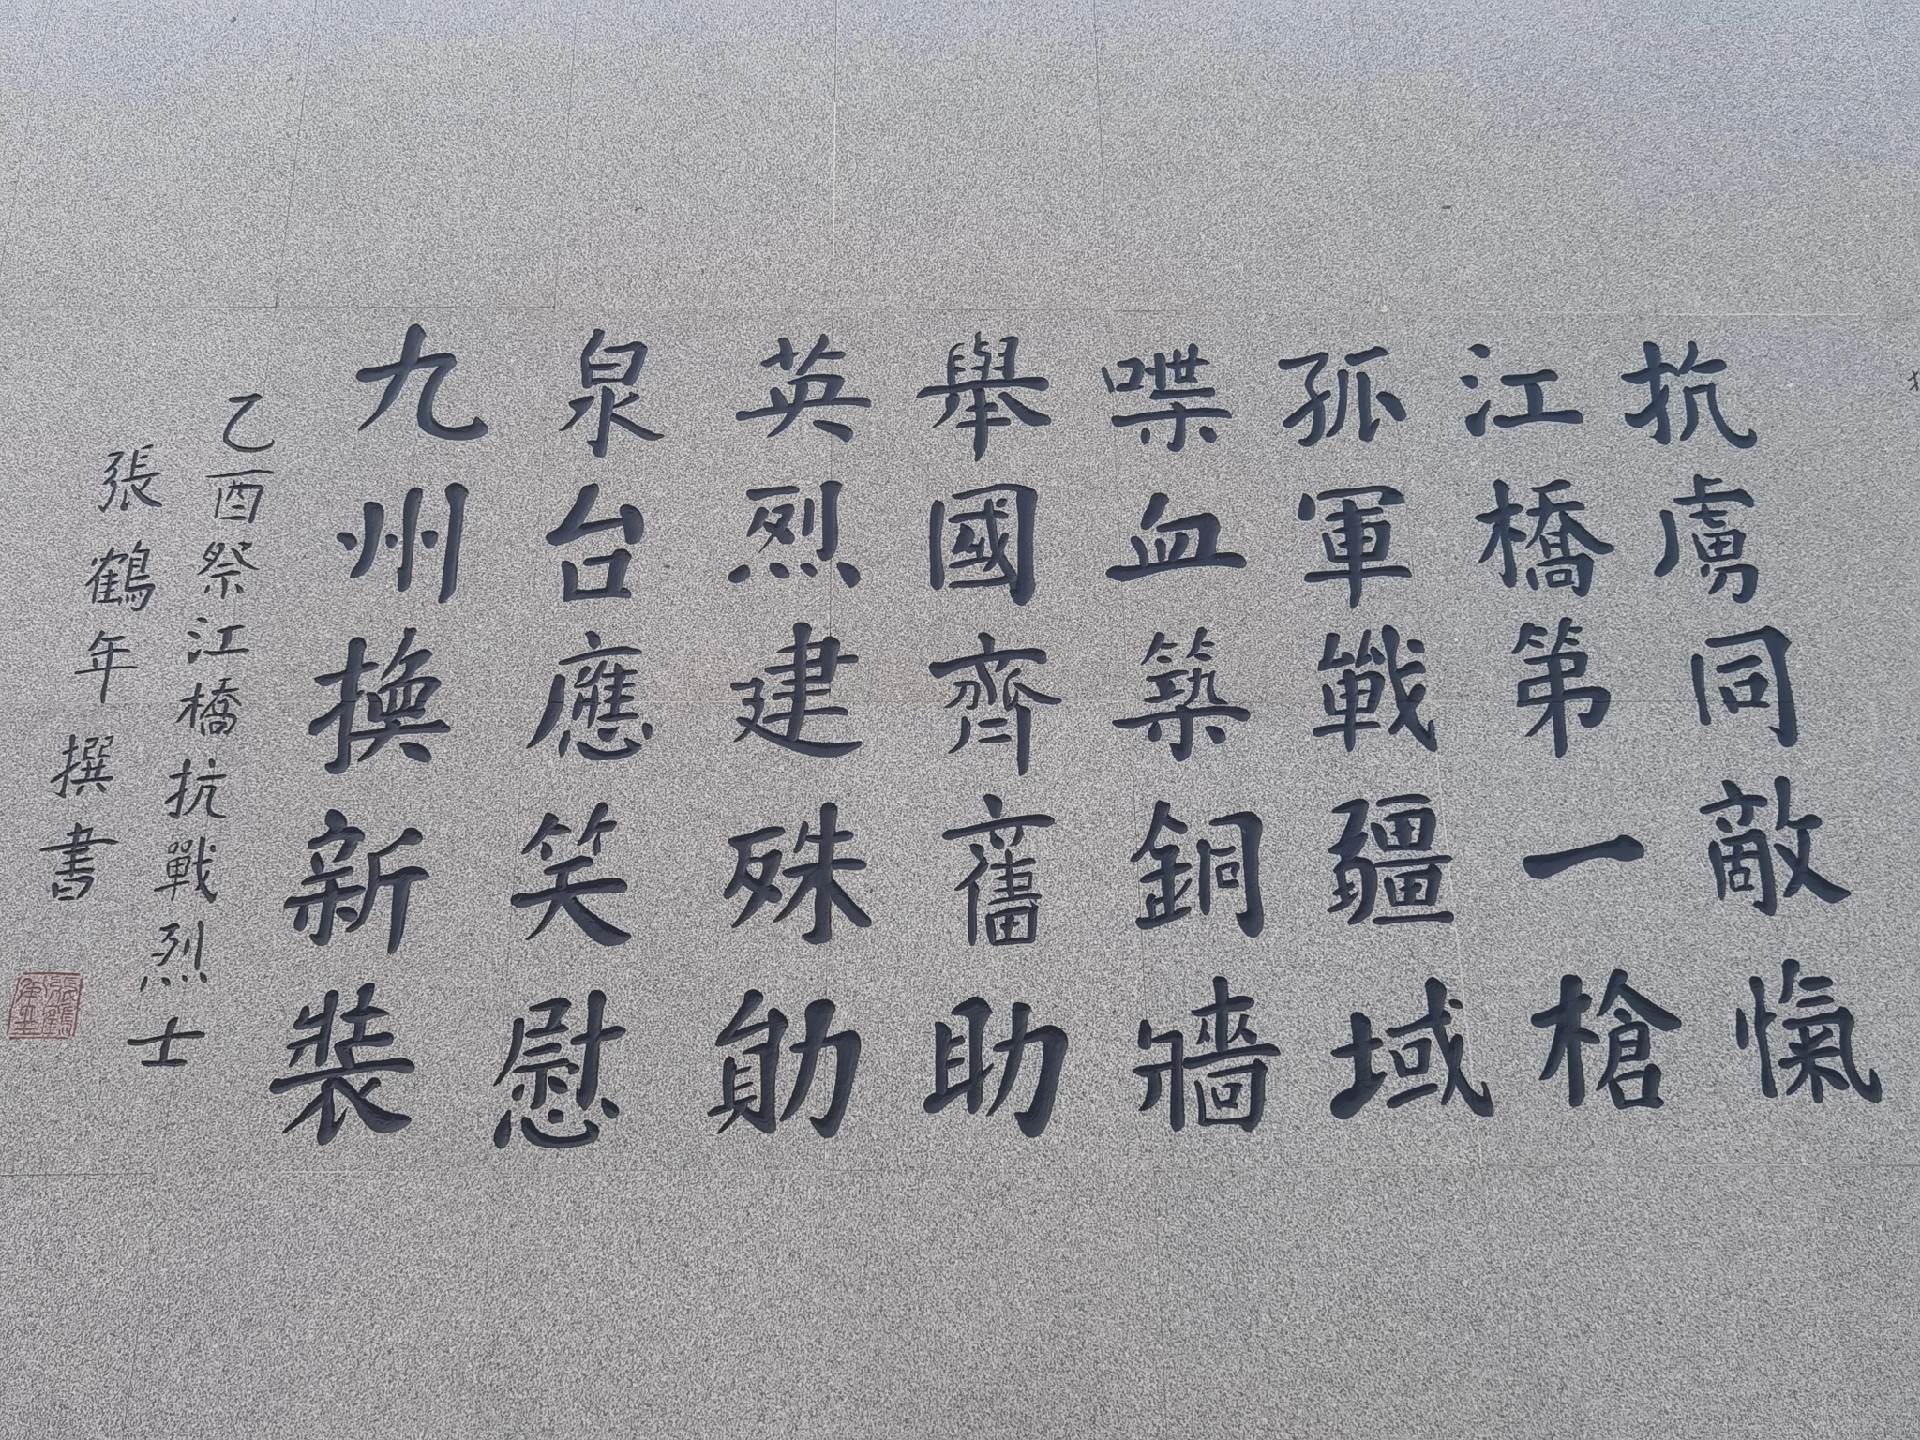 抗虜同敵愾
江橋第一槍
孤軍戰疆域
喋血築銅牆
舉國齊奮助
英烈建殊勛
泉台應笑慰
九州換新裝
乙酉祭江橋抗戰烈士
張鶴年撰書